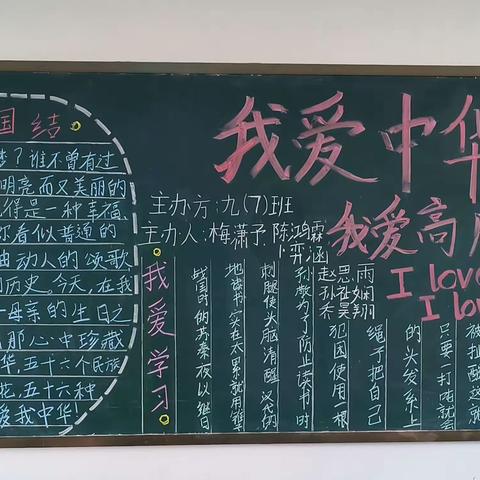 国结
梦?谁不曾有过
明亮而又美丽的
得是一种幸福、
你看似普通的
曲动人的颂歌
历史,今天,在我
母亲的生日之
那心中珍藏
华,五十六个民族
花,五十六种
爱我中华!
我爱中华
主办方:九(7)班
主办人:梅潇予,陈鸿霖
卞弈涵
赵思雨
我爱高
I love
I lo
我爱学习
战国时的苏秦夜以继日
地读书实在太累就用锥
刺腿使头脑清醒 汉代的
孙敬为了防止读书时
犯困使用一根
绳子把自己
的头发系上
只要一打盹就会
被扯醒这就